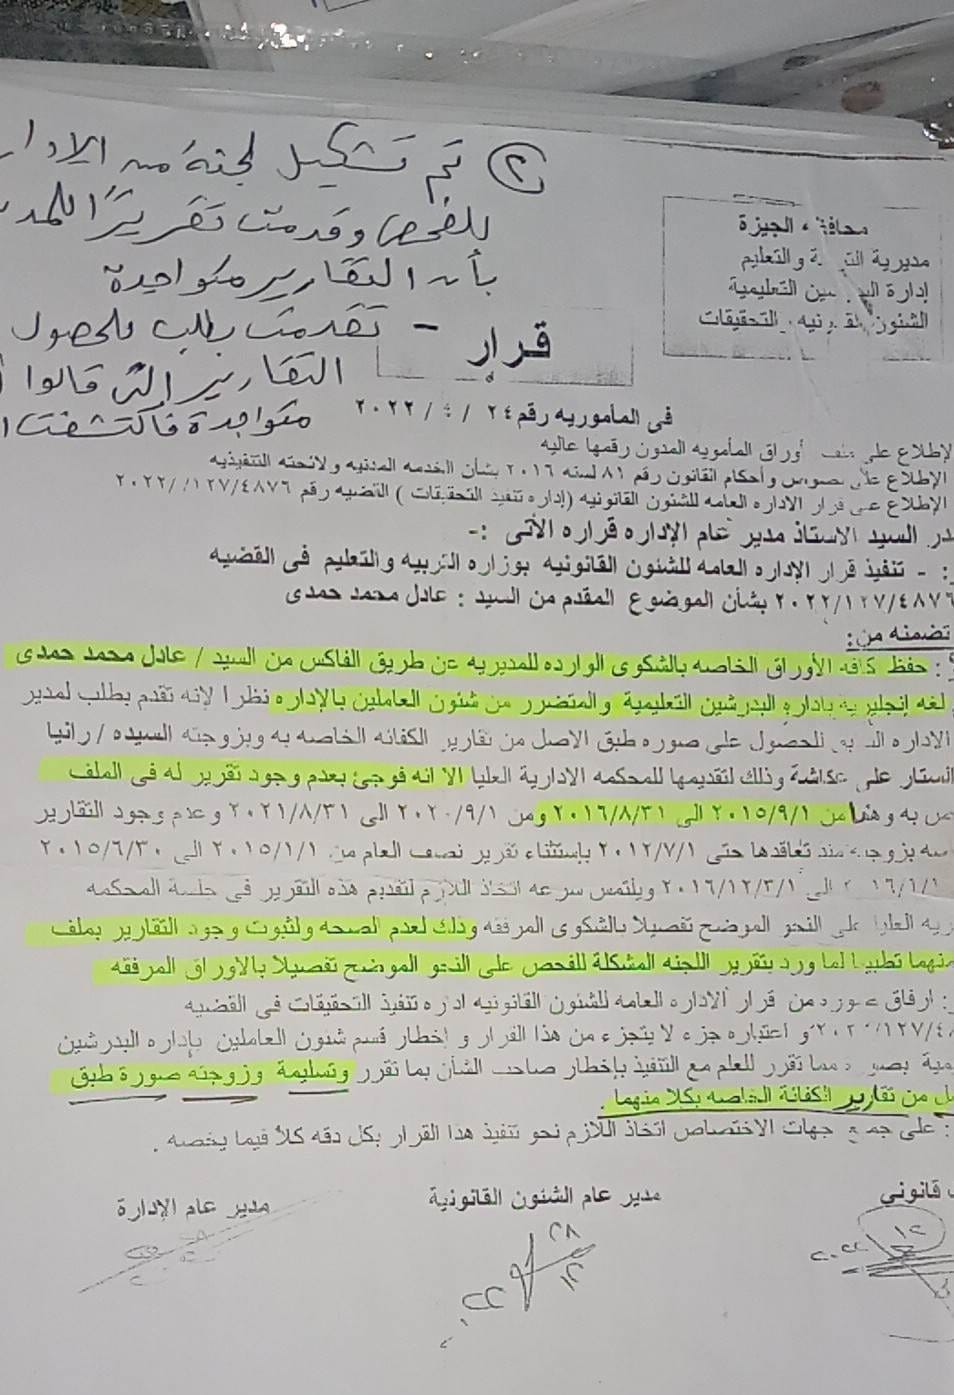 ② تم تشكيل لجنة من الادار
للفحص وقدمت تقريرًا للمد
بأن التقارير متواجدة
- تقدمت بطلب للحصول
التقارير التى قالوا
متواجدة فاكتشفت
محافظة الجيزة
مديرية التربية والتعليم
إدارة البدرشين التعليمية
الشئون القانونيه والتحقيقات
قرار
فى المأموريه رقم ٢٤ / ٤ / ٢٠٢٢
الإطلاع على ملف أوراق المأمويه المدون رقمها عاليه
الإطلاع على نصوص وأحكام القانون رقم ٨١ لسنه ٢٠١٦ بشأن الخدمه المدنيه ولائحته التنفيذيه
الإطلاع على قرار الاداره العامه للشئون القانونيه (إداره تنفيذ التحقيقات) القضيه رقم ٢٠٢٢/١٢٧/٤٨٧٦
در السيد الاستاذ مدير عام الإداره قراره الأتى :-
: - تنفيذ قرار الإداره العامه للشئون القانونيه بوزاره التربيه والتعليم فى القضيه
٢٠٢٢/١٢٧/٤٨٧٦ بشأن الموضوع المقدم من السيد : عادل محمد حمدى
تضمنه من:
: حفظ كافه الأوراق الخاصه بالشكوى الوارده للمديريه عن طريق الفاكس من السيد / عادل محمد حمدى
لغه إنجليزية بإداره البدرشين التعليمية والمتضرر من شئون العاملين بالإداره نظرا لإنه تقدم بطلب لمدير
الاداره للحصول على صوره طبق الاصل من تقارير الكفائه الخاصه به وبزوجته السيده / رانيا
الستار على عكاشة وذلك لتقديمها للمحكمه الادارية العليا الا انه فوجئ بعدم وجود تقرير له فى الملف
به وهما من ٢٠١٥/٩/١ الى ٢٠١٦/٨/٣١ ومن ٢٠٢٠/٩/١ الى ٢٠٢١/٨/٣١ وعدم وجود التقارير
بزوجته منذ تعاقدها حتى ٢٠١٢/٧/١ بإستثناء تقرير نصف العام من ٢٠١٥/١/١ الى ٢٠١٥/٦/٣٠
الى ٢٠١٦/١٢/٣١ ويلتمس سرعه اتخاذ اللازم لتقديم هذه التقرير فى جلسة المحكمه
العليا على النحو الموضح تفصيلا بالشكوى المرفقه وذلك لعدم الصحه ولثبوت وجود التقارير بملف
منهما تطبيقا لما ورد بتقرير اللجنه المشكلة للفحص على النحو الموضح تفصيلا بالاوراق المرفقه
: ارفاق صوره من قرار الاداره العامه للشئون القانونيه اداره تنفيذ التحقيقات فى القضيه
واعتباره جزء لا يتجزء من هذا القرار و إخطار قسم شئون العاملين بإداره البدرشين
بما تقرر للعلم مع التنفيذ بإخطار صاحب الشأن بما تقرر وتسليمة وزوجته صورة طبق
من تقارير الكفائة الخاصه بكلا منهما .
: على جميع جهات الاختصاص اتخاذ اللازم نحو تنفيذ هذا القرار بكل دقه كلا فيما يخصه .
قانوني
مدير عام الشئون القانونية
مدير عام الإدارة